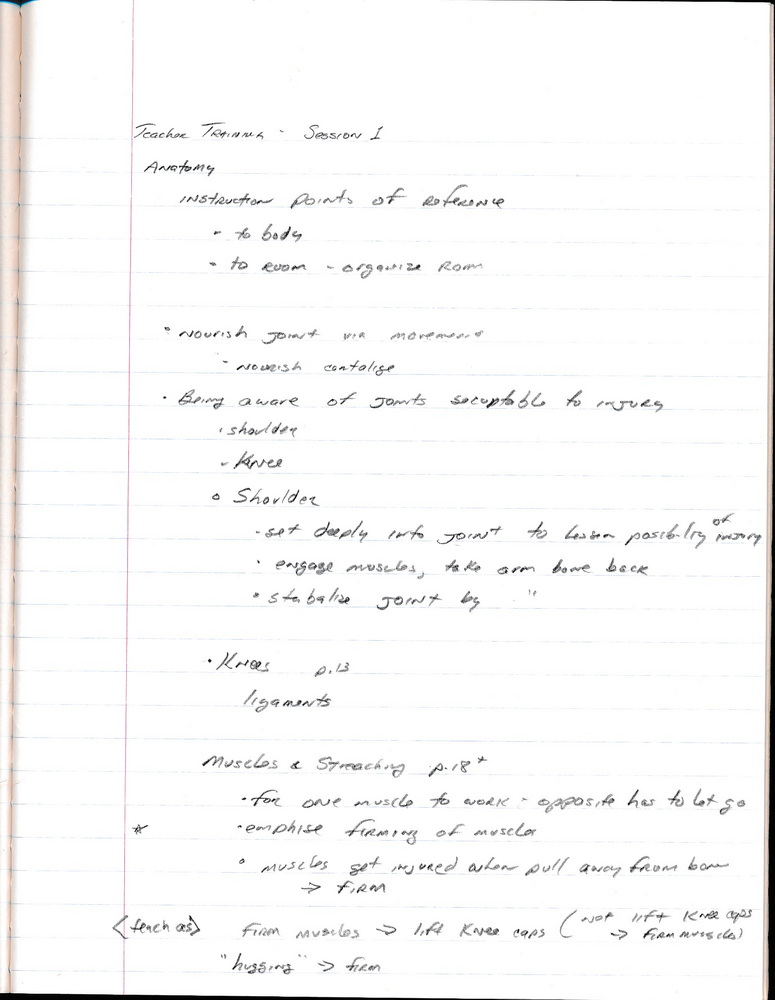 Teacher Training - Session I
Anatomy
instruction points of reference
- to body
- to room - organize room
• nourish joint via movement
- nourish cantalige
• Being aware of joints secuptable to injury
• shoulder
- Knee
o Shoulder
- set deeply into joint to lessen posibility of injury
• engage muscles, take arm bone back
• stabalize joint by "
• Knees p.13
ligaments
Muscles & Streaching p.18 *
• for one muscle to work - opposite has to let go
* • emphise firming of muscles
• muscles get injured when pull away from bone
→ firm
<teach as> firm muscles → lift Knee caps (not lift Knee caps
→ firm muscles)
"hugging" → firm